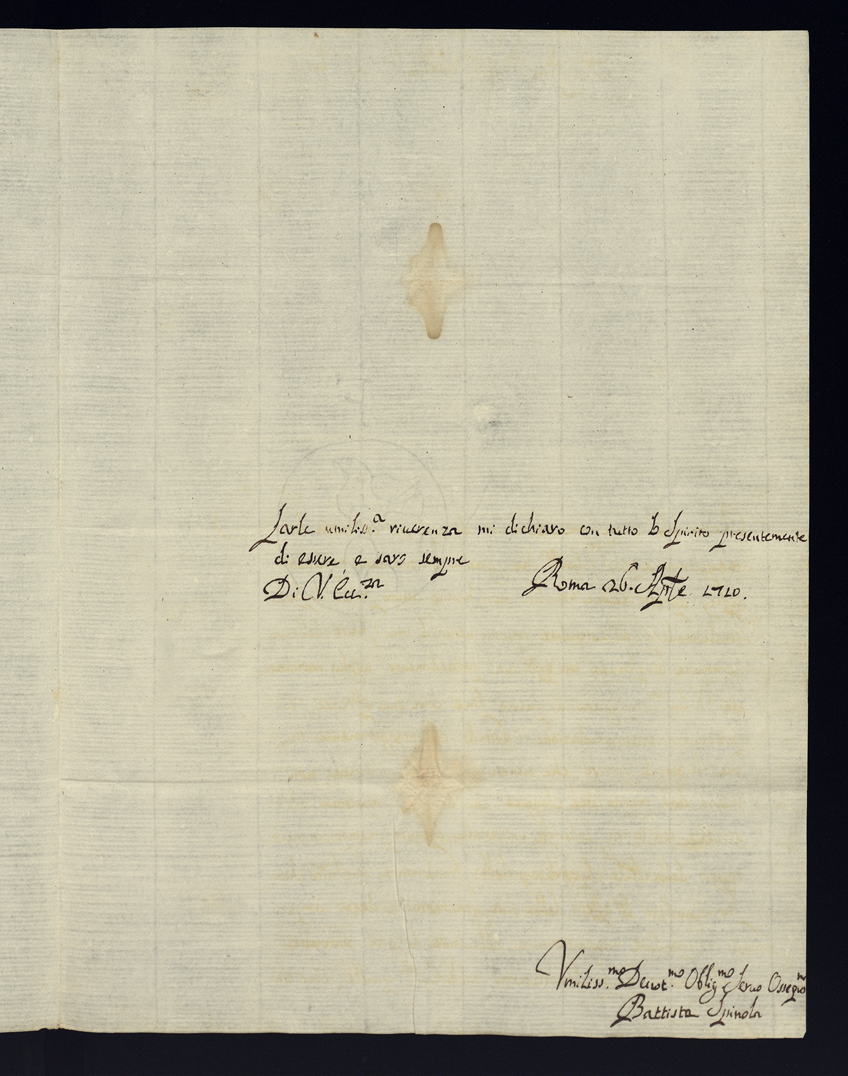 Farle umiliss.ᵃ riverenza mi dichiaro con tutto lo Spirito presentemente
di essere, e sarò sempre
Di V. Ecc.ᶻᵃ Roma 26. Aple 1710.
Umiliss.ᵐᵒ Devot.ᵐᵒ Oblig.ᵐᵒ Servo Osseqᵐᵒ
Battista Spinola